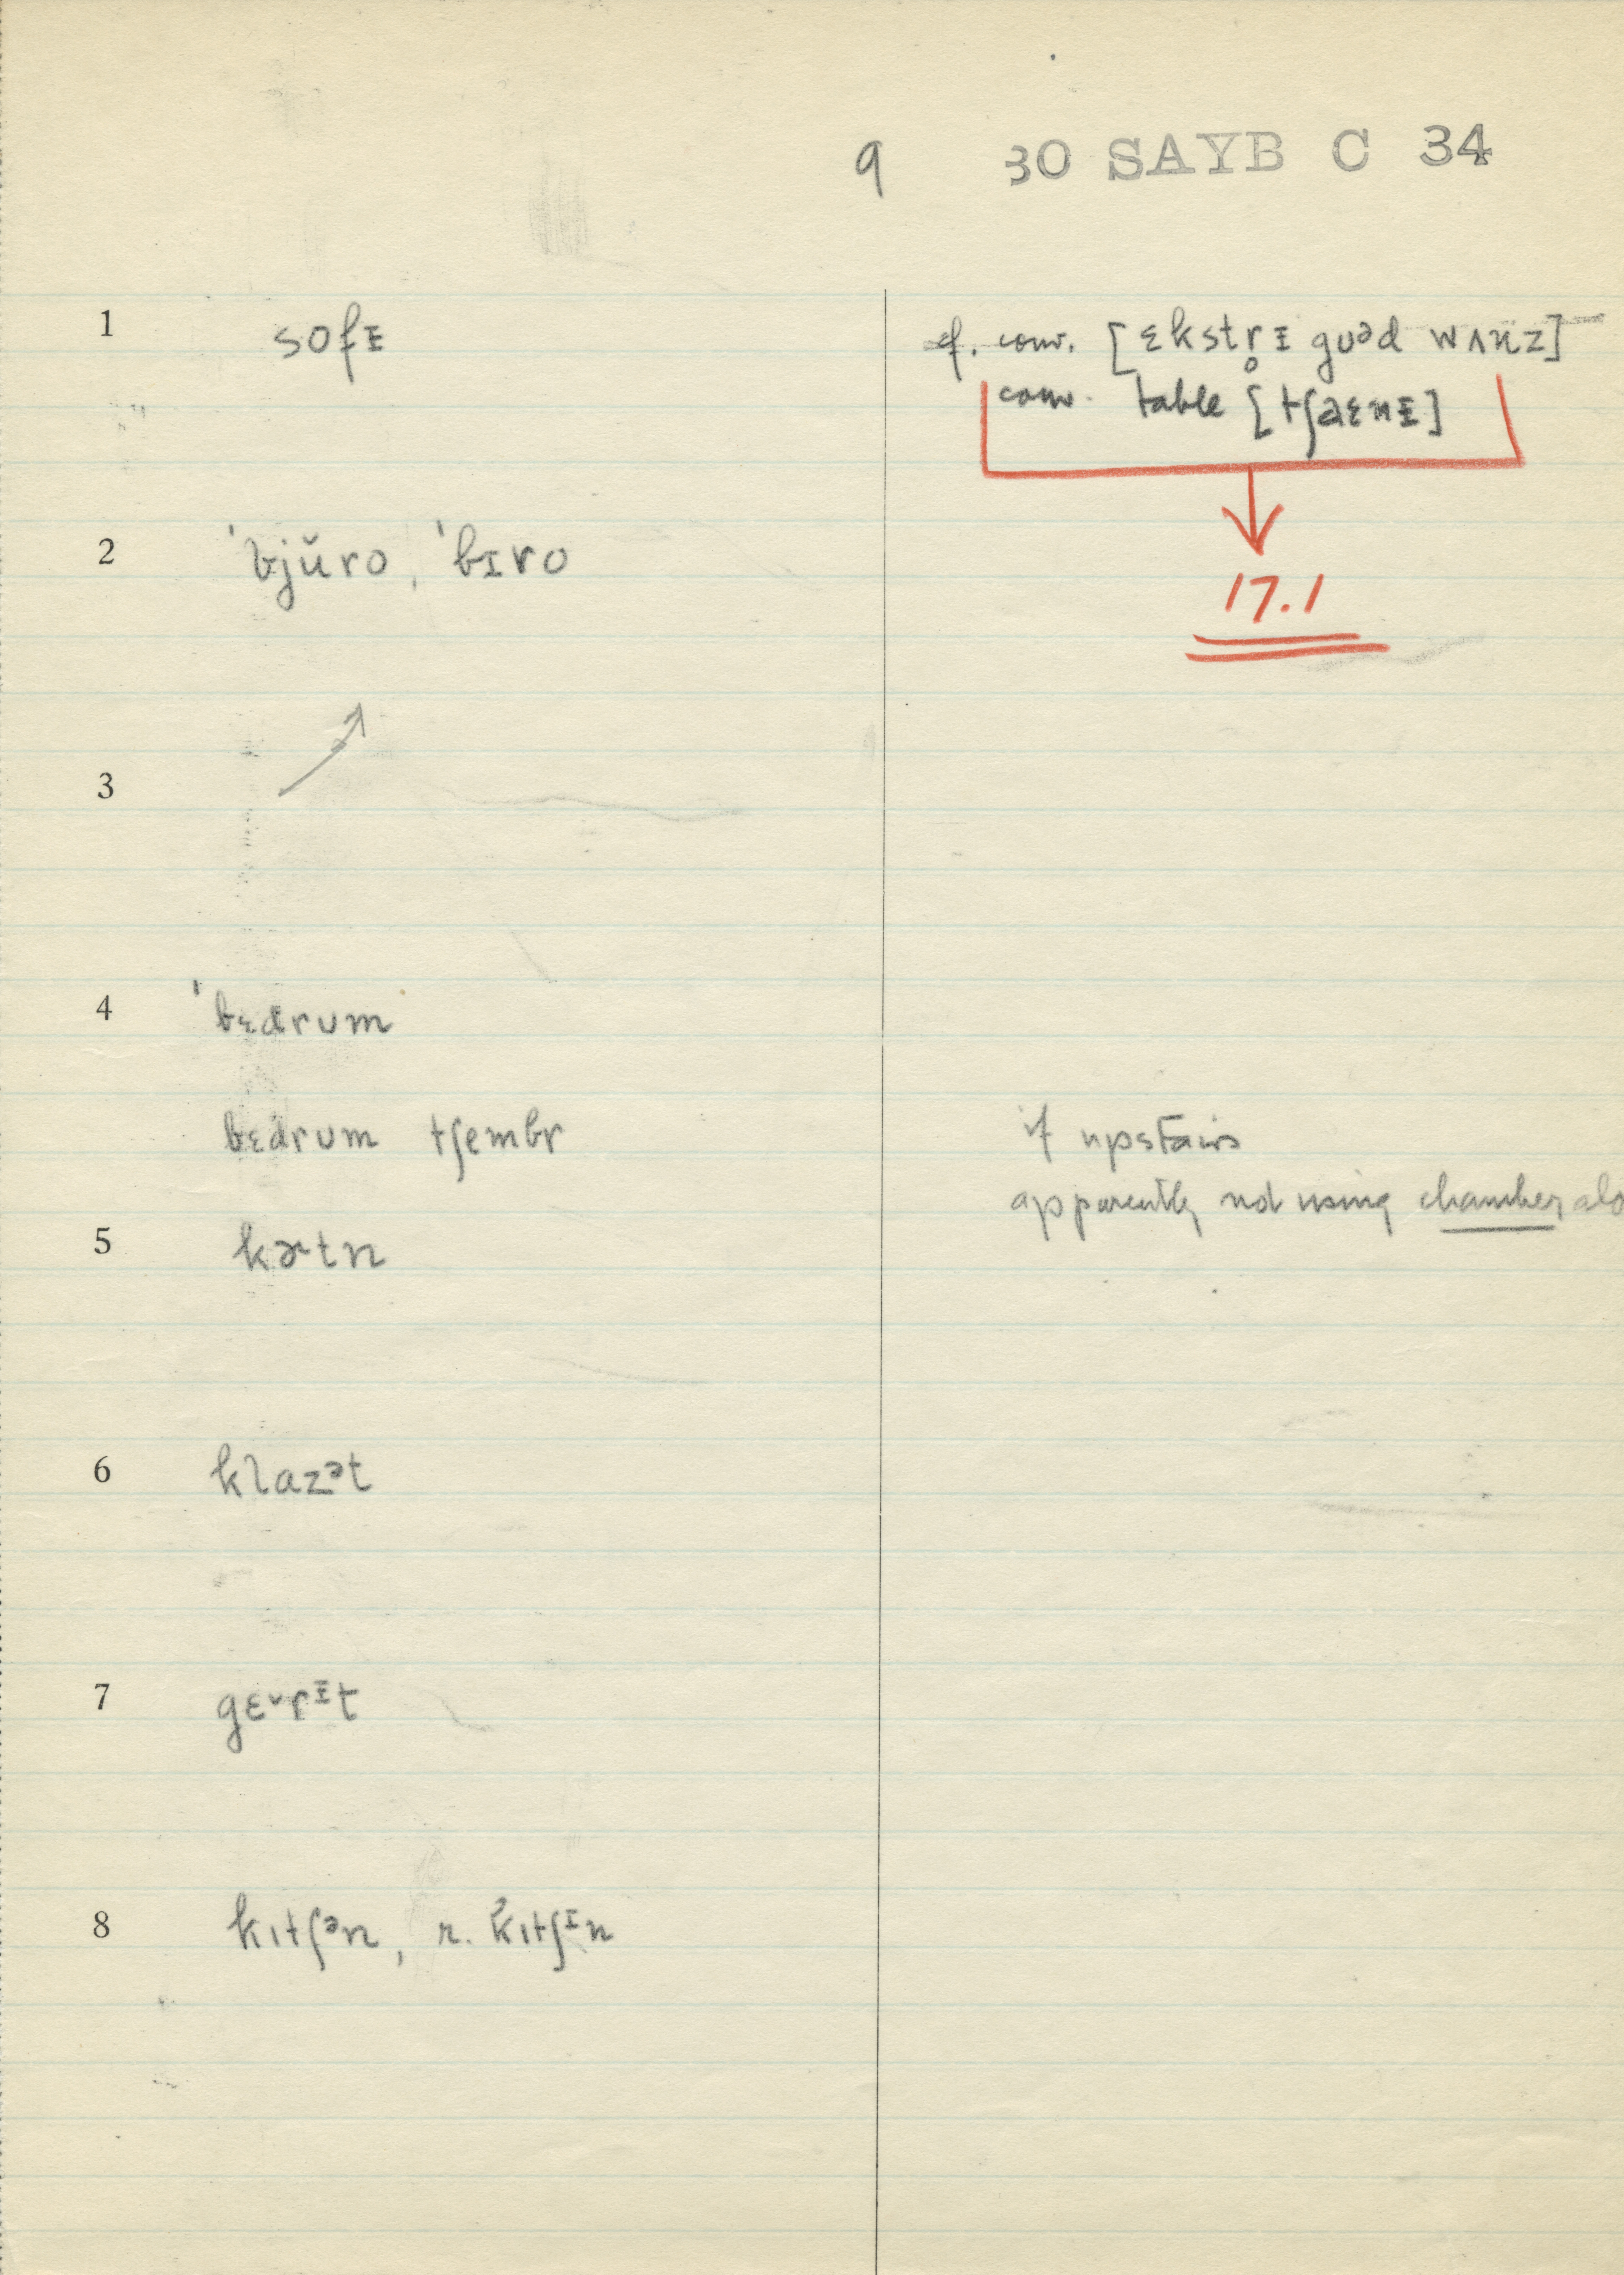 9 30 SAYB C 34
1 sofᵻ cf. conv. [ɛkstr̥ᵻ guᵊd wʌnz]
conv. table [tʃaɛnᵻ]
2 ˈbjŭro, ˈbɪro
17.1
3
4 ˈbɛdrum
bɛdrum tʃembr if upstairs
apparently not using chamber alo
5 kɚtn
6 klazᵊt
7 gɛ˅rᵻt
8 kɪtʃᵊn, r. kɪtʃᶦn